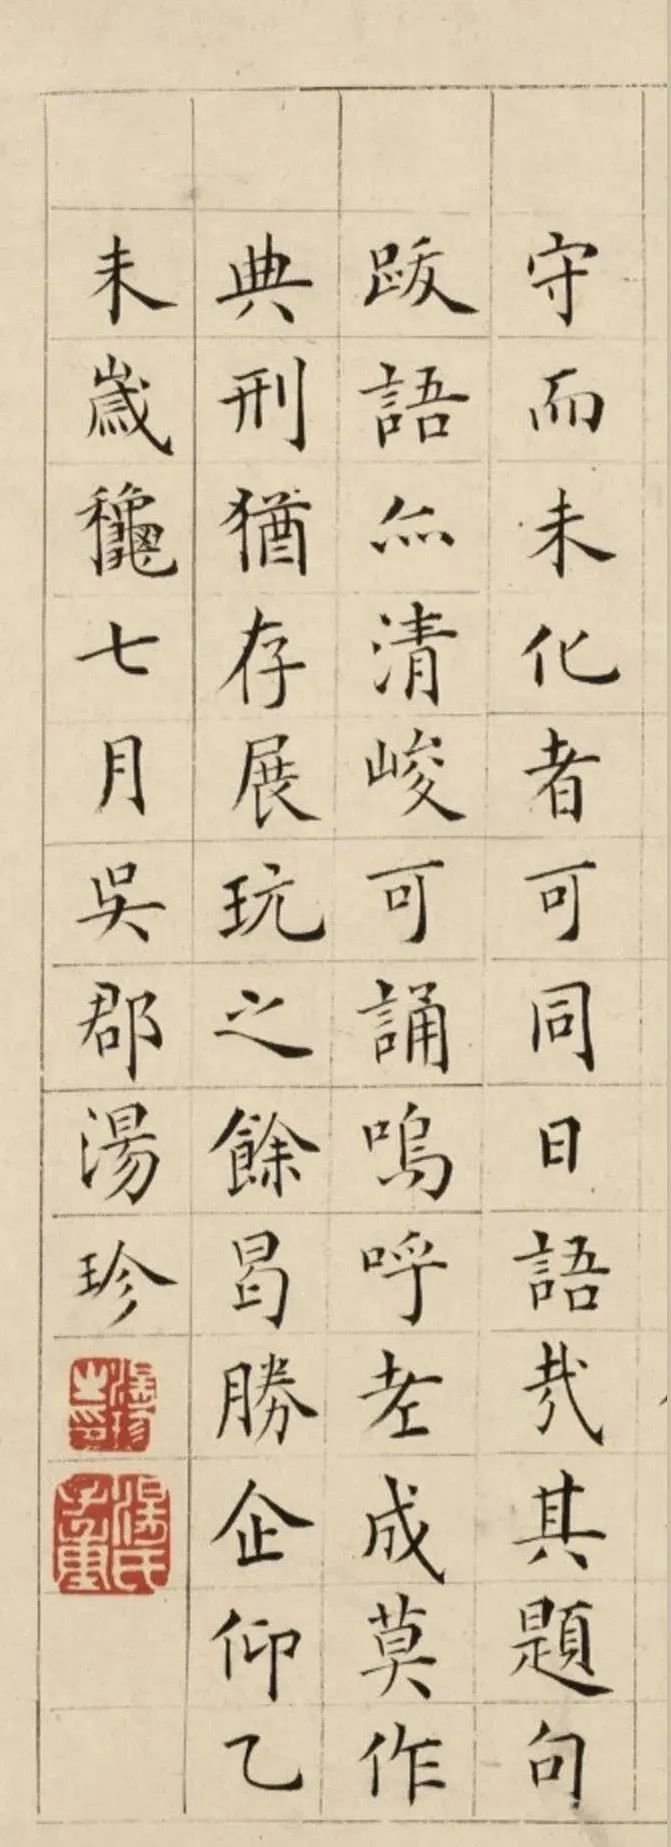 守而未化者可同日語哉其題句
跋語亦清峻可誦嗚呼老成莫作
典刑猶存展玩之餘曷勝企仰乙
未歲龝七月吳郡湯珍
湯珍之印
湯氏子重